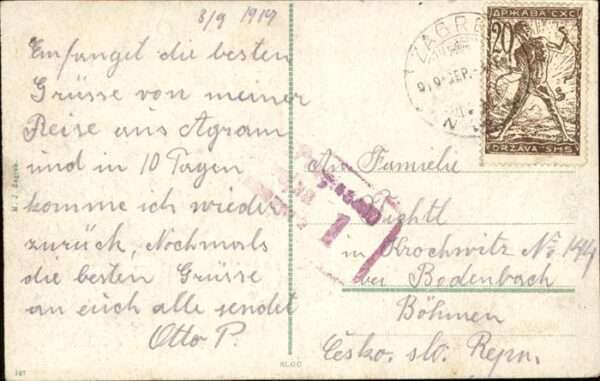 8/9 1919
Emfanget die besten
Grüsse von meiner
Reise aus Agram
und in 10 Tagen
komme ich wieder
zurück, Nochmals
die besten Grüsse
an euch alle sendet
Otto P.
ZAGREB
20
ДРЖАВА СХС
DRŽAVA SHS
An Familie
in Krochwitz No 144
bei Bodenbach
Böhmen
Česko. slv. Repu.
1